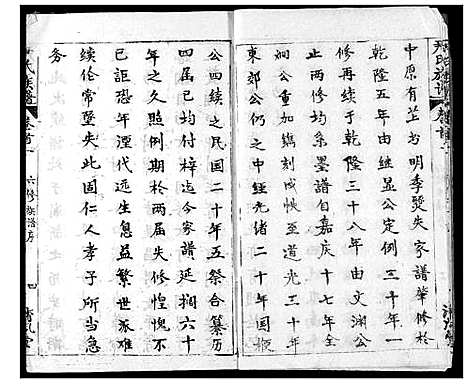 中原有茔於明季毁失家譜肇修於
乾隆五年由继显公定例三十年一
修再续于乾隆三十八年由文渊公
止两修均系墨谱自嘉庆十七年全
嗣公重加鐫刻成帙至道光二十年
東郊公仍之中經光绪二十年国
公四续之民国二十年五祭合纂历
四届已均付梓迄今家譜延擱六十
年之久照例期於两届失修惶愧不
已讵恐年湮代远生息益繁世派难
续伦常墜失此固仁人孝子所当急
务
氏族譜
卷首
六修族譜序
四